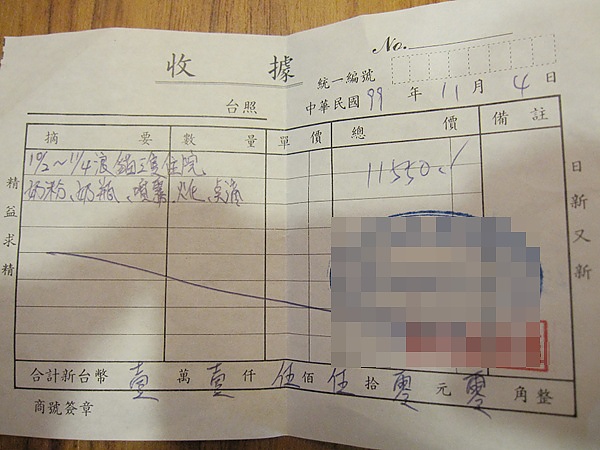 收據
No.
統一編號
台照
中華民國 99 年 11 月 4 日
摘要 數量 單價 總價 備註
10/2~11/4 浪貓三隻住院 11550./
奶粉、奶瓶、噴藥、火化、点滴
精益求精
日新又新
合計新台幣 壹 萬 壹 仟 伍 佰 伍 拾 零 元 零 角整
商號簽章